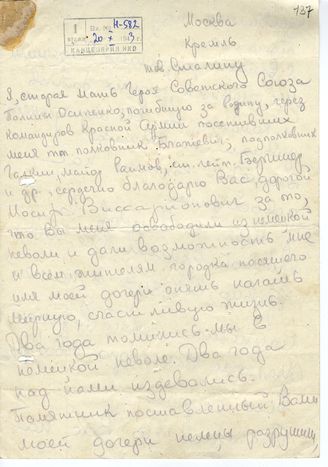 Москва
437
Вх. № Н-582
20 X 1943 г.
КАНЦЕЛЯРИЯ НКО
Кремль
тов. Сталину
Я, старая мать Героя Советского Союза
Полины Осипенко, погибшую за родину, через
командиров Красной Армии посетивших
меня тов полковник подполковник
Галкин, майор ст. лейт. Бергинер
и др., сердечно благодарю Вас, дорогой
Иосиф Виссарионович за то,
что Вы меня освободили из немецкой
неволи и дали возможность мне
и всем жителям городка носящего
имя моей дочери опять начать
мирную, счастливую жизнь.
Два года томились мы в
немецкой неволе. Два года
над нами издевались.
Памятник поставленный Вами
моей дочери немцы разрушили